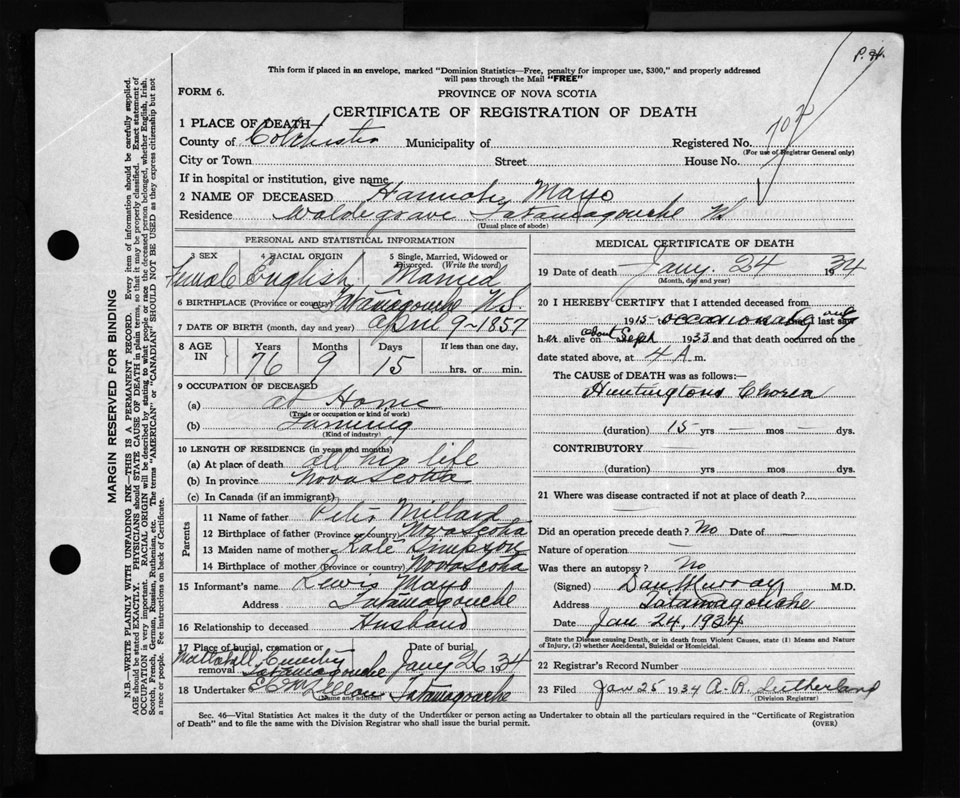 P.H.
This form if placed in an envelope, marked "Dominion Statistics—Free, penalty for improper use, $300," and properly addressed
will pass through the Mail "FREE"
FORM 6.
PROVINCE OF NOVA SCOTIA
CERTIFICATE OF REGISTRATION OF DEATH
1 PLACE OF DEATH
County of Colchester Municipality of Registered No. 702
(For use of Registrar General only)
City or Town Street House No.
If in hospital or institution, give name
2 NAME OF DECEASED Hannah Mayo
Residence Waldegrave Tatamagouche NS
(Usual place of abode)
PERSONAL AND STATISTICAL INFORMATION
3 SEX 4 RACIAL ORIGIN 5 Single, Married, Widowed or Divorced. (Write the word)
Female English Married
6 BIRTHPLACE (Province or country) Tatamagouche N.S.
7 DATE OF BIRTH (month, day and year) April 9-1857
8 AGE IN Years Months Days If less than one day.
76 9 15 hrs. or min.
9 OCCUPATION OF DECEASED
(a) at Home
(Trade or occupation or kind of work)
(b) Farming
(Kind of industry)
10 LENGTH OF RESIDENCE (in years and months)
(a) At place of death all her life
(b) In province Nova Scotia
(c) In Canada (if an immigrant)
Parents
11 Name of father Peter Millard
12 Birthplace of father (Province or country) Nova Scotia
13 Maiden name of mother Kate Simpson
14 Birthplace of mother (Province or country) Nova Scotia
15 Informant's name Lewis Mayo
Address Tatamagouche
16 Relationship to deceased Husband
17 Place of burial, cremation or removal Date of burial
Cemetery
Tatamagouche Jany 26 1934
18 Undertaker Tatamagouche
(Name and address)
MEDICAL CERTIFICATE OF DEATH
19 Date of death Jany. 24 1934
(Month, day and year)
20 I HEREBY CERTIFY that I attended deceased from
1915 occasionally and last saw
her alive on about Sept 1933 and that death occurred on the
date stated above, at 4 A. m.
The CAUSE OF DEATH was as follows:—
Huntingtons Chorea
(duration) 15 yrs — mos — dys.
CONTRIBUTORY —
(duration) yrs. mos. dys.
21 Where was disease contracted if not at place of death?
Did an operation precede death? No Date of —
Nature of operation —
Was there an autopsy? No
(Signed) Dan Murray M.D.
Address Tatamagouche
Date Jan 24, 1934
State the Disease causing Death, or in death from Violent Causes, state (1) Means and Nature
of Injury, (2) whether Accidental, Suicidal or Homicidal.
22 Registrar's Record Number
23 Filed Jan 25 1934 A. R. Sutherland
(Division Registrar)
Sec. 46—Vital Statistics Act makes it the duty of the Undertaker or person acting as Undertaker to obtain all the particulars required in the "Certificate of Registration
of Death" and to file the same with the Division Registrar who shall issue the burial permit.
(OVER)
MARGIN RESERVED FOR BINDING
N.B.—WRITE PLAINLY WITH UNFADING INK—THIS IS A PERMANENT RECORD. Every item of information should be carefully supplied.
AGE should be stated EXACTLY. PHYSICIANS should STATE CAUSE OF DEATH in plain terms, so that it may be properly classified. Exact statement of
OCCUPATION is very important. RACIAL ORIGIN will be described by stating to what people or race the deceased person belonged, whether English, Irish,
Scotch, French, German, Russian, Ruthenian, etc. The terms "AMERICAN" or "CANADIAN" SHOULD NOT BE USED as they express citizenship but not
a race or people. See instructions on back of Certificate.